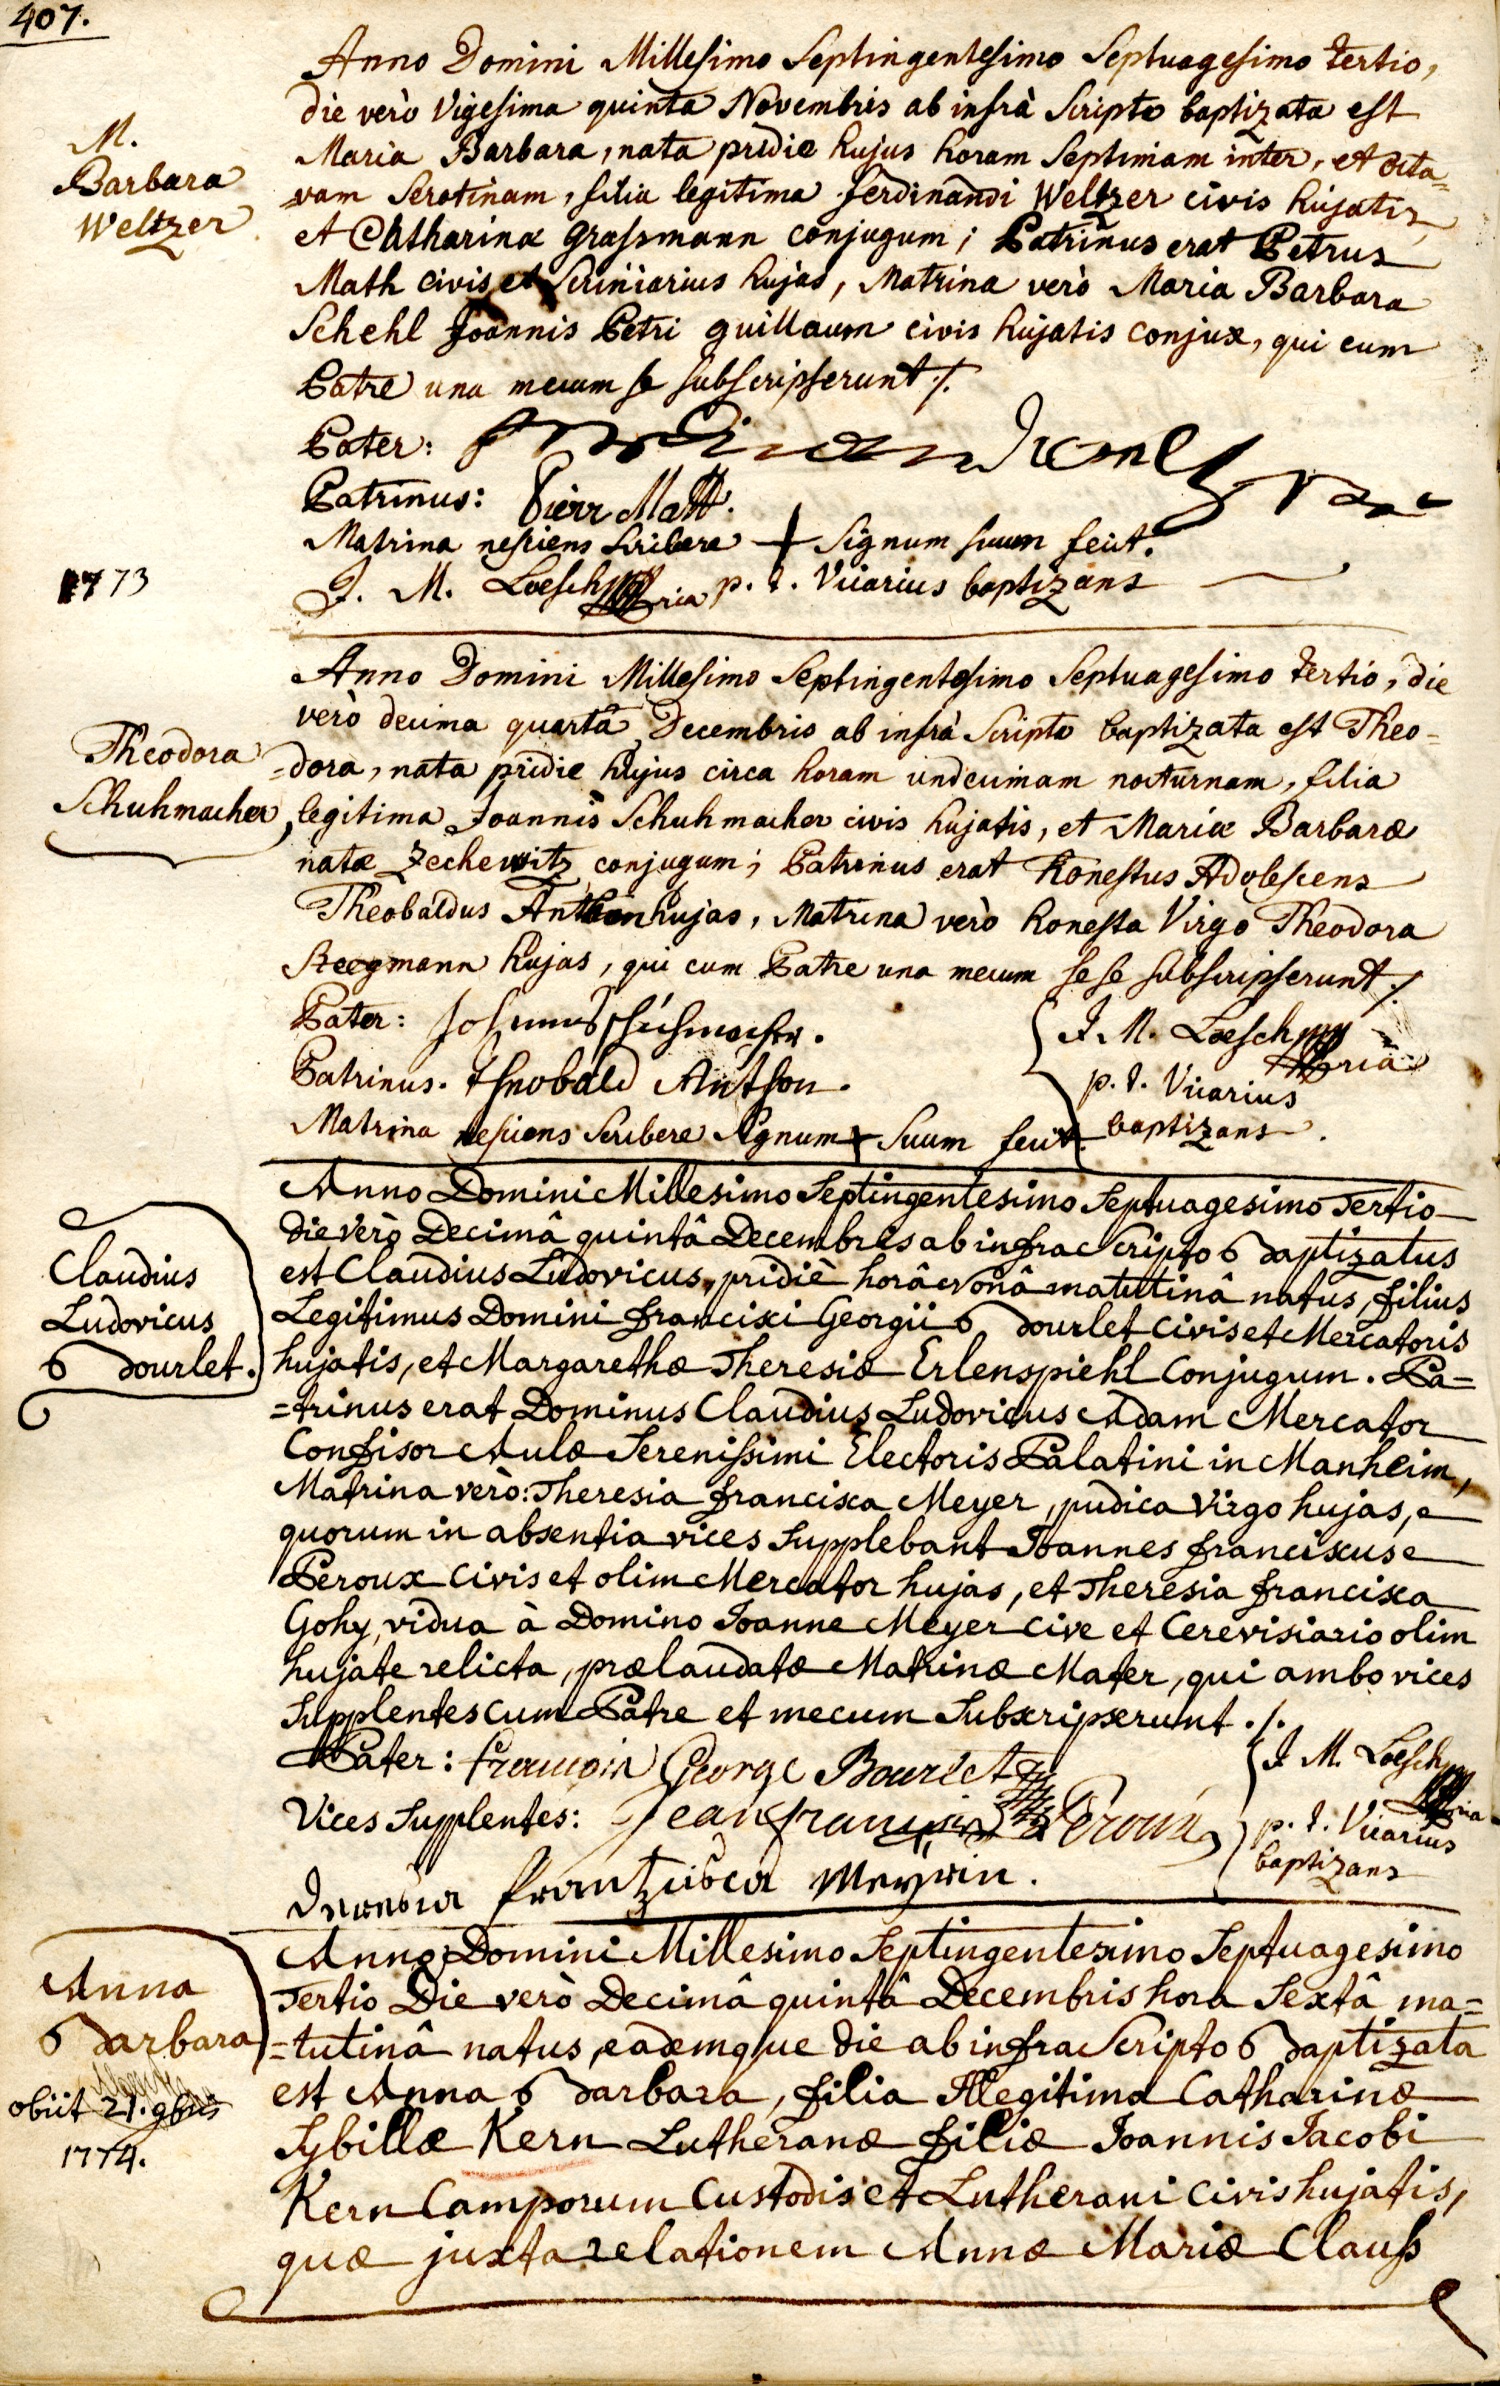 407.
Anno Domini Millesimo Septingentesimo Septuagesimo tertio,
die verò Vigesima quinta Novembris ab infrà Scripto baptizata est
M.
Barbara
Weltzer
Maria Barbara, nata pridie hujus horam Septimam inter, et octa=
vam Serotinam, filia legitima ferdinandi Weltzer civis hujatis
et Catharinæ Grassmann conjugum; Patrinus erat Petrus
Math civis et Scriniarius hujas, Matrina verò Maria Barbara
Schehl Joannis Petri Guillaum civis hujatis conjux, qui cum
Patre una mecum se subscripserunt ./.
Pater:
Patrinus: Pierr Matt.
Matrina nesciens scribere + Signum suum fecit.
1773
J. M. Loesch p. t. Vicarius baptizans
Anno Domini Millesimo Septingentesimo Septuagesimo tertio, die
verò decima quartâ Decembris ab infrà Scripto baptizata est Theo=
Theodora
Schuhmacher
=dora, nata pridie hujus circa horam undecimam nocturnam, filia
legitima Joannis Schuhmacher civis hujatis, et Mariæ Barbaræ
natæ Zechewitz conjugum; Patrinus erat honestus Adolescens
Theobaldus Anthon hujas, Matrina verò honesta Virgo Theodora
Steegmann hujas, qui cum Patre una mecum se se subscripserunt ./.
Pater: Johannes Schuhmacher.
Patrinus. Theobald Anthon.
Matrina nesciens Scribere Signum + Suum fecit.
J. M. Loesch
p. t. Vicarius
baptizans.
Anno Domini Millesimo Septingentesimo Septuagesimo Tertio
die verò Decimâ quintâ Decembris ab infra Scripto Baptizatus
Claudius
Ludovicus
Bourlet.
est Claudius Ludovicus, pridiè horâ nonâ matutinâ natus, filius
Legitimus Domini francisci Georgii Bourlet civis et Mercatoris
hujatis, et Margarethæ Theresiæ Erlenspiehl Conjugum. Pa=
=trinus erat Dominus Claudius Ludovicus Adam Mercator
Confisor Aulæ Serenissimi Electoris Palatini in Manheim,
Matrina verò: Theresia francisca Meyer, pudica Virgo hujas,
quorum in absentia vices Supplebant Joannes franciscus
Peroux Civis et olim Mercator hujas, et Theresia francisca
Gohy, vidua à Domino Joanne Meyer Cive et Cerevisiario olim
hujate relicta, prælaudatæ Matrinæ Mater, qui ambo vices
Supplentes cum Patre et mecum Subscripserunt ./.
Pater: françois George Bourlet
Vices Supplentes: Jean françois Peroux
frantzisca Meyerin.
J. M. Loesch
p. t. Vicarius
baptizans
Anno Domini Millesimo Septingentesimo Septuagesimo
Tertio Die verò Decimâ quintâ Decembris hora Sextâ ma=
Anna
Barbara
obiit 21. 9bris
1774.
=tutinâ natus, eademque die ab infra Scripto Baptizata
est Anna Barbara, filia Illegitima Catharinæ
Sybillæ Kern Lutheranæ filiæ Joannis Jacobi
Kern Camporum Custodis et Lutherani Civis hujatis,
quæ juxta relationem Annæ Mariæ Clauß